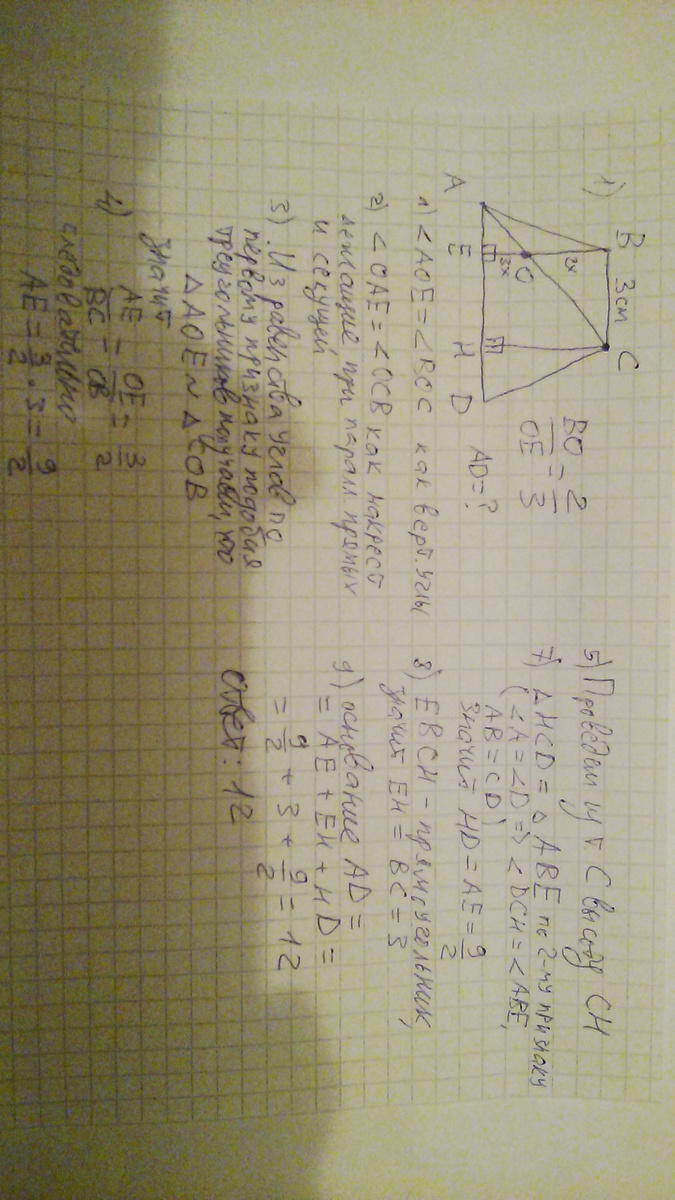 1)
B 3см C
2x
O
3x
A E H D
BO/OE = 2/3
AD = ?
1) <AOE = <BOC как верт. углы
2) <OAE = <OCB как накрест
лежащие при парал прямых
и секущей
3) Из равенства углов по
первому признаку подобия
треугольников получаем, что
△AOE ~ △COB
значит
4) AE/BC = OE/OB = 3/2
следовательно
AE = 3/2 · 3 = 9/2
5) Проведем из т C высоту CH
7) △HCD = △ABE по 2-му признаку
(<A = <D => <DCH = <ABE,
AB = CD)
Значит HD = AE = 9/2
8) EBCH - прямоугольник,
значит EH = BC = 3
9) основание AD =
= AE + EH + HD =
= 9/2 + 3 + 9/2 = 12
Ответ: 12